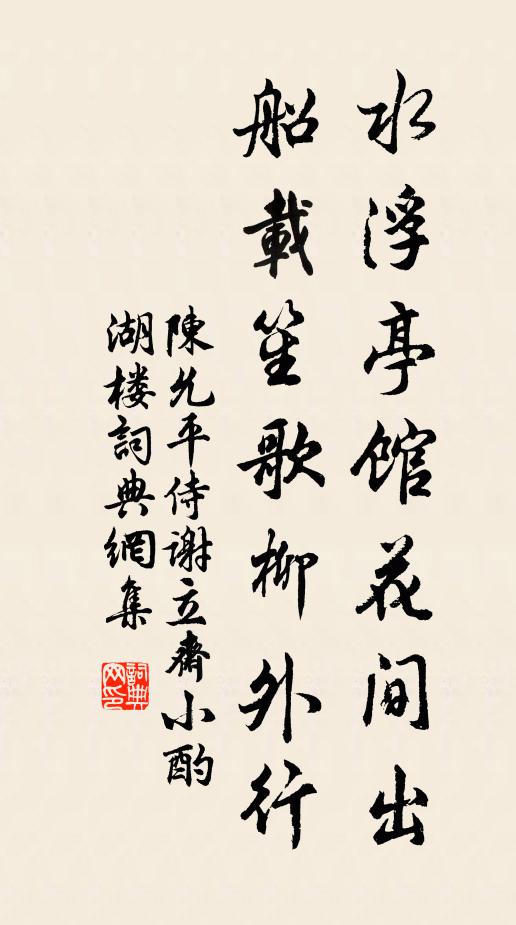 水浮亭館花間出
船載笙歌柳外行
陳允平侍謝立齋小酌
湖楼詞典網集
詞典网印